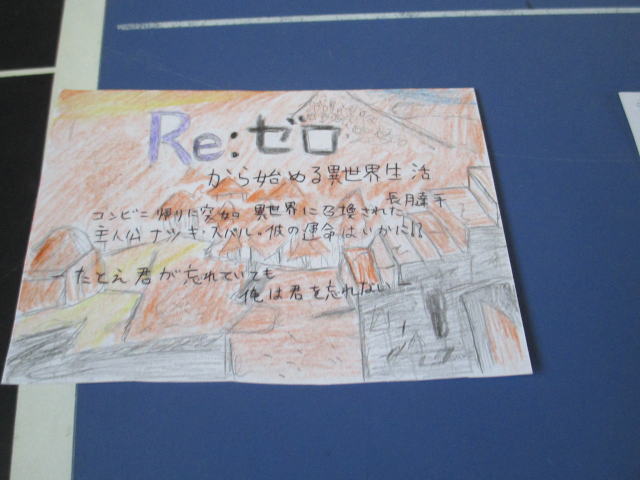 Re:ゼロ
から始める異世界生活
長月達平
コンビニ帰りに突如 異世界に召換された
主人公ナツキ・スバル。彼の運命はいかに!?
たとえ君が忘れていても
俺は君を忘れない